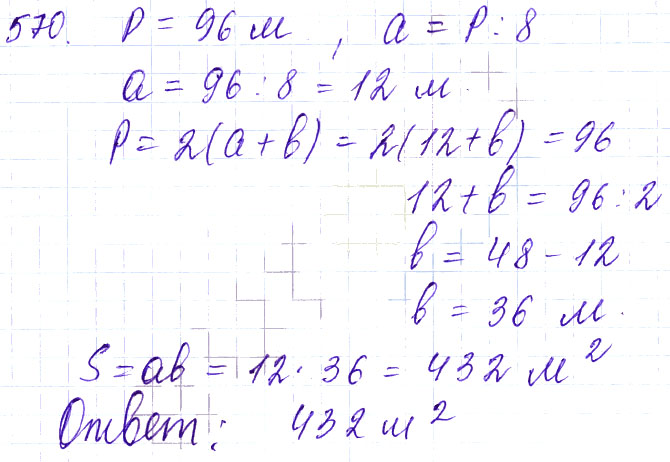 570. P = 96 м, a = P : 8
a = 96 : 8 = 12 м.
P = 2(a + b) = 2(12 + b) = 96
12 + b = 96 : 2
b = 48 - 12
b = 36 м.
S = ab = 12 · 36 = 432 м²
Ответ: 432 м²